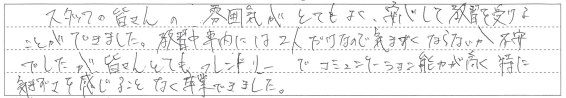 スタッフの皆さんの雰囲気がとてもよく、安心して教習を受ける
ことができました。教習中車内には2人だけなので気まずくならないか不安
でしたが皆さんとてもフレンドリーでコミュニケーション能力が高く特に
気まずさを感じることなく卒業できました。